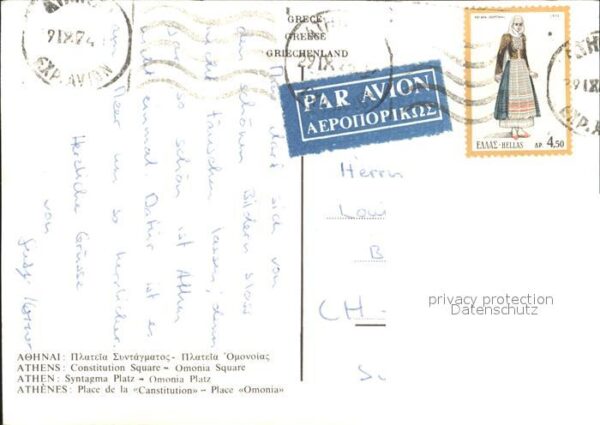 GRÈCE
GREECE
GRIECHENLAND
29 IX 74
ΕΚΡ. AVION
PAR AVION
ΑΕΡΟΠΟΡΙΚΩΣ
1972
ΕΛΛΑΣ-HELLAS ΔΡ. 4,50
Man darf sich von
den schönen Bildern
nicht täuschen lassen, denn
so schön ist Athen
nicht einmal. Dafür ist es
am Meer um so herrlicher.
Herzliche Grüsse
von
Herrn
Loui
B
CH-
privacy protection
Datenschutz
ΑΘΗΝΑΙ: Πλατεία Συντάγματος - Πλατεία Ὁμονοίας
ATHENS: Constitution Square - Omonia Square
ATHEN: Syntagma Platz - Omonia Platz
ATHÈNES: Place de la «Canstitution» - Place «Omonia»